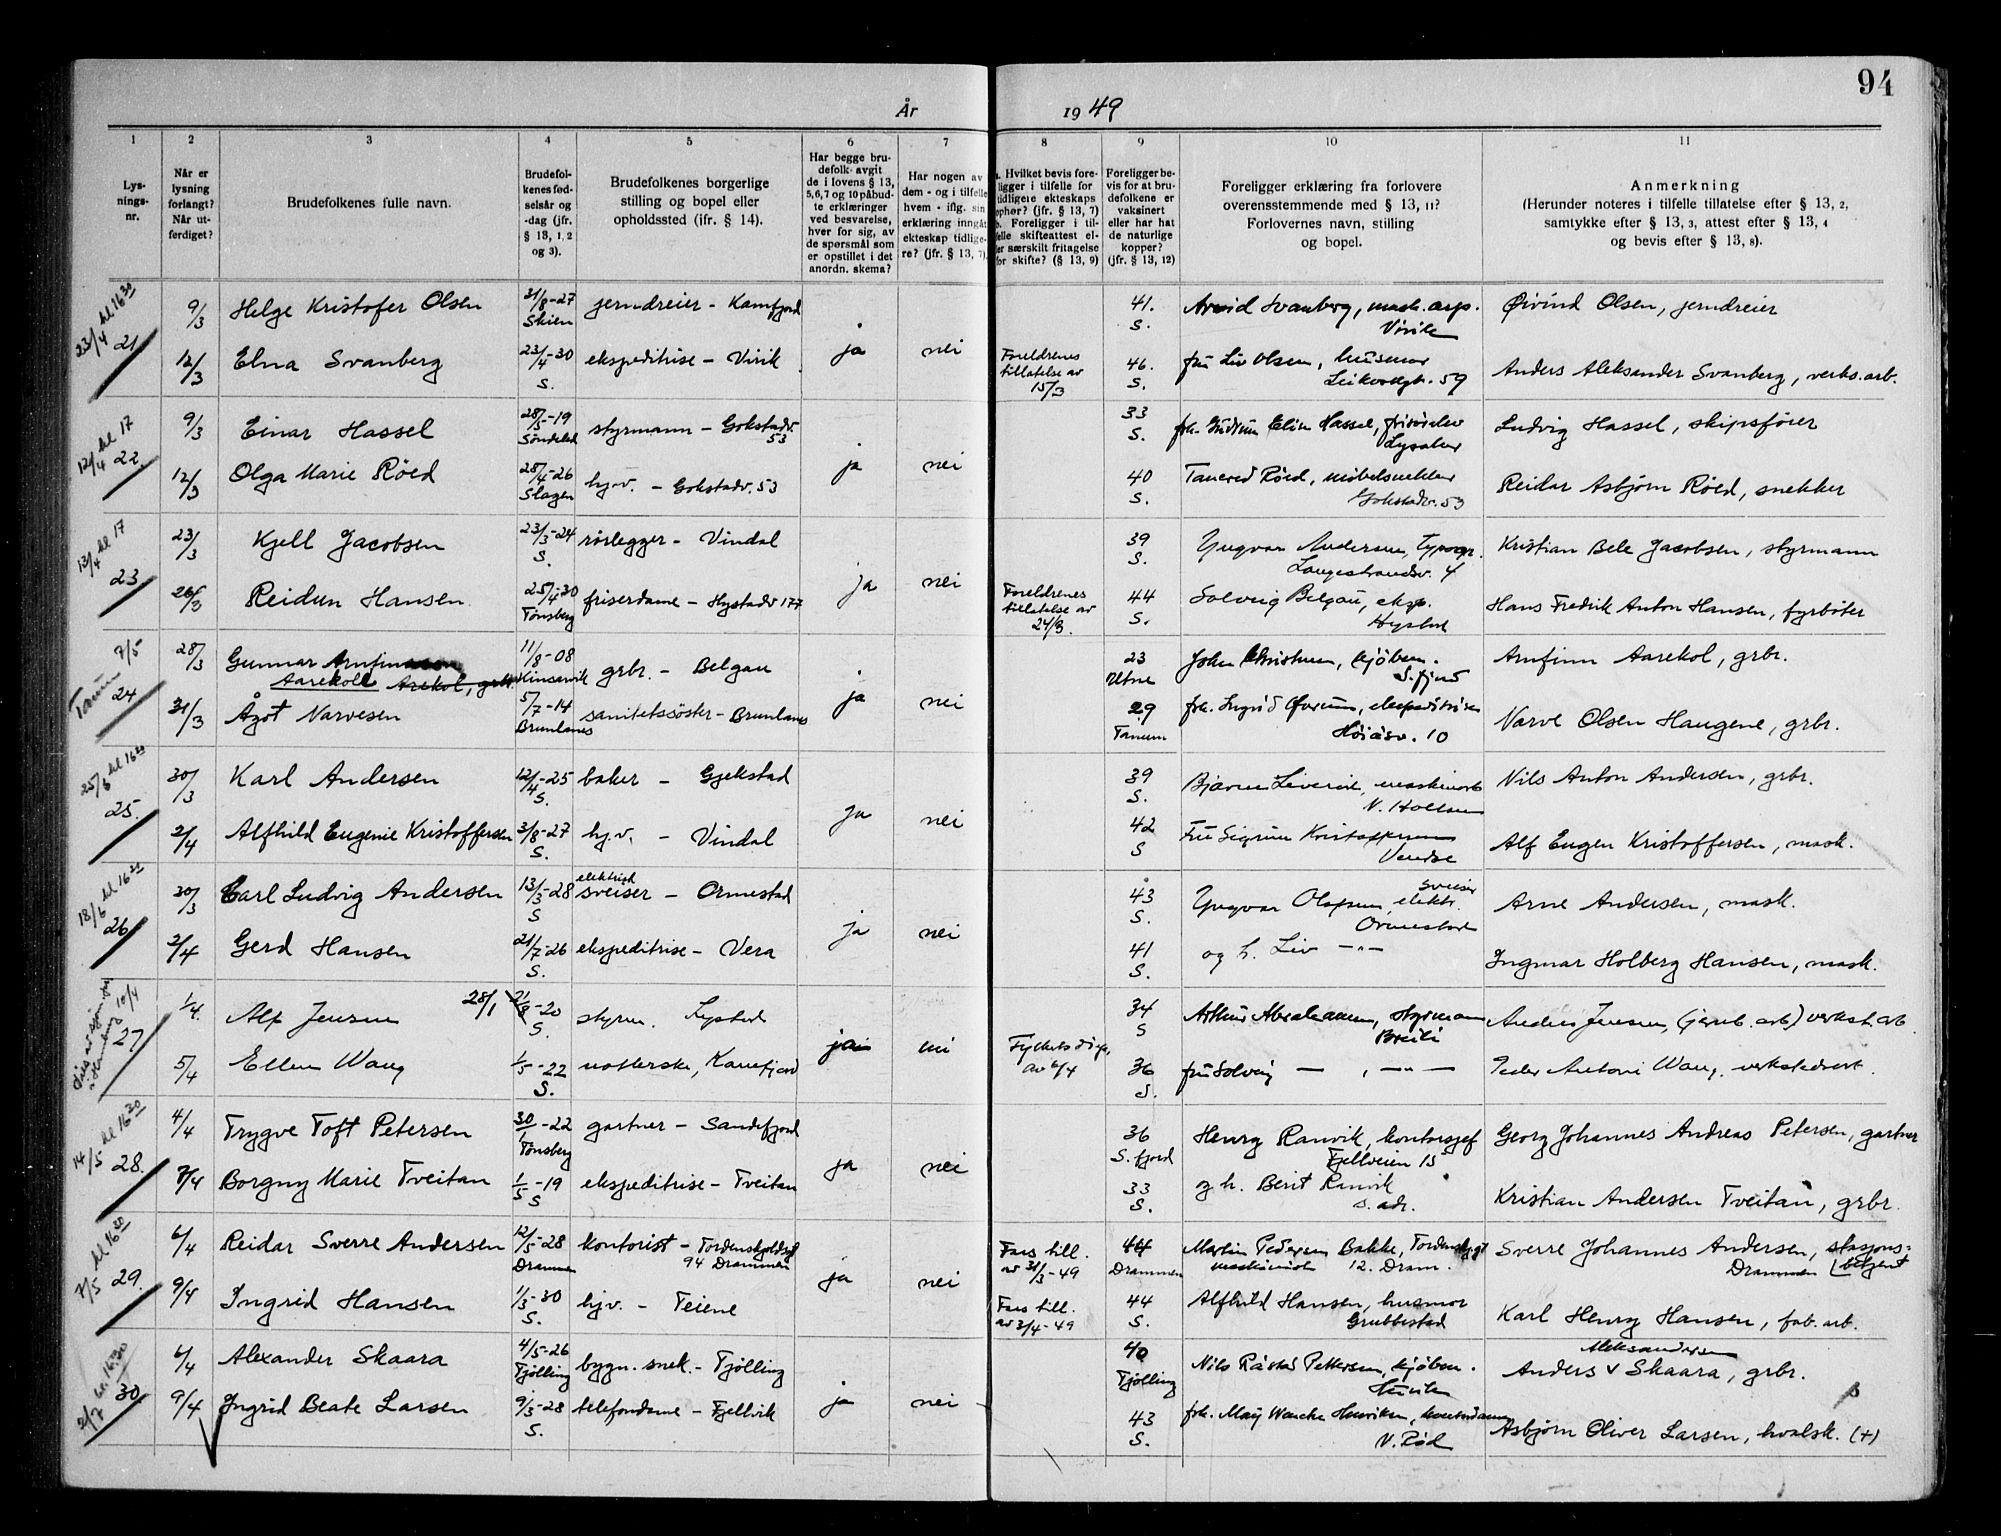 94
År 1949
1 2 3 4 5 6 7 8 9 10 11
Lys-
nings-
nr.
Når er
lysning
forlangt?
Når ut-
ferdiget?
Brudefolkenes fulle navn.
Brudefol-
kenes fød-
selsår og
-dag (jfr.
§ 13, 1, 2
og 3).
Brudefolkenes borgerlige
stilling og bopel eller
opholdssted (ifr. § 14).
Har begge bru-
defolk avgit
de i lovens § 13,
5,6,7 og 10 påbud-
te erklæringer
ved besvarelse,
hver for sig, av
de spørsmål som
er opstillet i det
anordn. skema?
Har nogen av
dem - og i tilfelle
hvem - iflg. sin
erklæring inngåt
ekteskap tidlige-
re? (jfr. § 13, 7).
Hvilket bevis fore-
ligger i tilfelle for
tidligere ekteskaps
ophør? (jfr. § 13, 7)
Foreligger i til-
felle skifteattest el-
ler særskilt fritagelse
for skifte? (§ 13, 9)
Foreligger be-
vis for at bru-
defolkene er
vaksinert
eller har hat
de naturlige
kopper?
(jfr. § 13, 12)
Foreligger erklæring fra forlovere
overensstemmende med § 13, 11?
Forlovernes navn, stilling
og bopel.
Anmerkning
(Herunder noteres i tilfelle tillatelse efter § 13, 2,
samtykke efter § 13, 3, attest efter § 13, 4
og bevis efter § 13, 8).
23/4 kl 16 30
21
9/3 Helge Kristofer Olsen 31/8-27 Skien jerndreier - Kamfjord 41. S. Arvid Svanberg, mask. arp. Virik Øivind Olsen, jerndreier
ja nei
12/3 Elna Svanberg 23/4-30 S. ekspeditrise - Virik Foreldrenes tillatelse av 15/3 46. S. fru Liv Olsen, husmor 59 Anders Aleksander Svanberg, verks. arb.
12/4 kl 17
22
9/3 Einar Hassel 28/5-19 styrmann - Gokstadv. 53 33 S. frk. Gudrun Elin Hassel, Lysaker Ludvig Hassel, skipsfører
ja nei
12/3 Olga Marie Röed 28/4-26 Slagen hj.v. - Gokstadv. 53 40 S. Tancred Röed, möbelsnekker Gokstadv. 53 Reidar Asbjørn Röed, snekker
13/4 kl 17
23
23/3 Kjell Jacobsen 23/3-24 S. rörlegger - Vindal 39 S. Yngvar Andersen, Typogr. Langestrandsv. 4 Kristian Bele Jacobsen, styrmann
ja nei
26/3 Reidun Hansen 25/4-30 Tønsberg friserdame - Hystadv 177 Foreldrenes tillatelse av 24/3. 44 S. Solveig Belgau, eksp. Hystad Hans Fredrik Anton Hansen, fyrbøter
Tanum 7/5
24
28/3 Gunnar Arnfinnson Aarekoll Arekol, grbr. 11/8-08 Kinsarvik grbr. - Belgau 23 Utne John Christensen, kjöbm. S.fjord Arnfinn Aarekol, grbr.
ja nei
31/3 Ågot Narvesen 5/7-14 Brunlanes sanitetssöster - Brunlanes 29 Tanum frk. Ingrid ekspeditrise 10 Narve Olsen Haugene, grbr.
25/6 kl 16 30
25.
30/3 Karl Andersen 12/4-25 S. baker - Gjekstad 39 S. Bjarne maskinarb Nils Anton Andersen, grbr.
ja nei
2/4 Alfhild Eugenie Kristoffersen 3/8-27 S. hj.v. - Vindal 42 S Fru Sigrun Kristoffersen Alf Eugen Kristoffersen, mask.
18/6 kl 16 30
26
30/3 Carl Ludvig Andersen 13/3-28 S elektrisk sveiser - Ormestad 43 S. Yngvar Olafsen, elektr. sveiser Ormestad Arne Andersen, mask.
ja nei
2/4 Gerd Hansen 21/7-26 S. ekspeditrise - Vera 41 S. og h. Liv -"- Ingmar Holberg Hansen, mask.
10/4
27.
1/4. Alf Jensen 28/1 21/8-20 S. styrm. Hystad 34 S Arthur Abrahamsen, styrmann Breili Anders Jensen (jernb. arb) verkst. arb
ja nei
5/4 Ellen Waag 1/5-22 S. Kamfjord av 6/4 36 S. fru Solveig — , —"— Peder Antoni Waag, verkstedarb.
14/5 kl 16 30
28.
4/4 Trygve Toft Petersen 30/1-22 Tønsberg gartner - Sandefjord 36 S. fjord Henry Ranvik, kontorsjef Fjellveien 15 Georg Johannes Andreas Petersen, gartner
ja nei
7/4 Borgny Marie Tveitan 1/5-19 S ekspeditrise - Tveitan 33 S. og h. Berit Ranvik s. adr. Kristian Andersen Tveitan, grbr.
7/5 kl 16 30
29.
6/4 Reidar Sverre Andersen 12/5-28 Drammen kontorist - Tordenskjoldsgt 94 Drammen Fars till. av 31/3-49 44 Drammen Martin Pedersen Bakke, maskinist 12. Dram. Sverre Johannes Andersen, stasjons-betjent Drammen
ja nei
9/4 Ingrid Hansen 1/3-30 S. hj.v. - Teiene Fars till. av 3/4-49 44 S. Alfhild Hansen, husmor Grubbestad Karl Henry Hansen, fab. arb.
2/7 kl. 16.30
30
6/4 Alexander Skaara 4/5-26 Tjølling bygn. snek. - Tjölling 40 Tjølling Nils Råstad Pettersen, kjöbm. Anders v Aleksandersen Skaara, grbr.
ja nei
9/4 Ingrid Beate Larsen 9/3-28 S. telefondame - Fjellvik 43 S. frk. May Wenche Henriksen, kontordame V. Röd Asbjørn Oliver Larsen, hvalsk. (+)